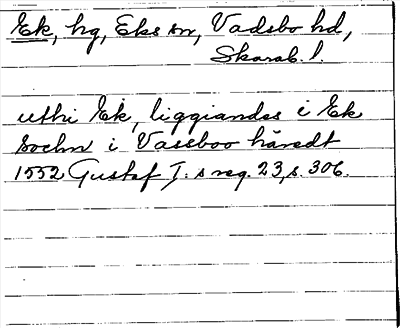 Ek, hg, Eks sn, Vadsbo hd,
Skarab. l.
uthi Ek, liggiandes i Ek
Sochn i Vassboo häredt
1552 Gustaf I:s reg. 23, s. 306.